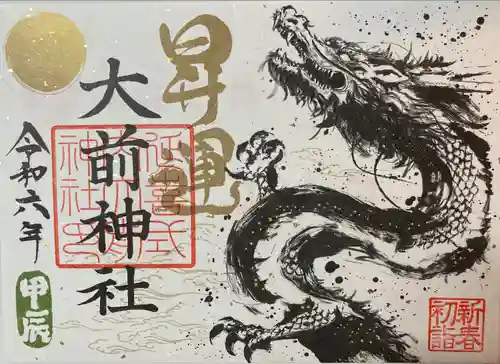 昇運
大前神社
延喜式
令和六年
甲辰
新春
初詣